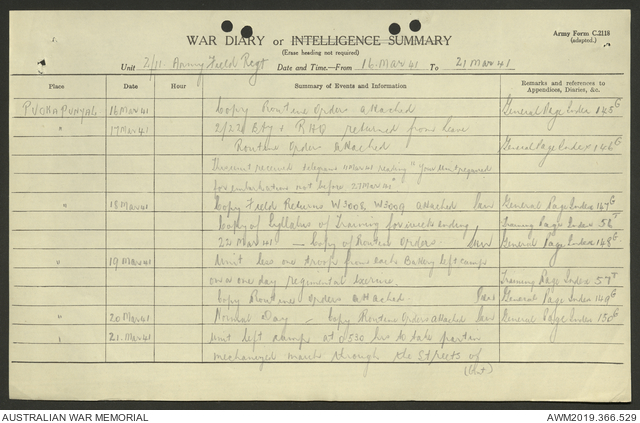 Army Form C.2118
(adapted.)
WAR DIARY or INTELLIGENCE SUMMARY
(Erase heading not required)
Unit 2/11 Army Field Regt Date and Time.—From 16 Mar 41 To 21 Mar 41
Place Date Hour Summary of Events and Information Remarks and references to Appendices, Diaries, &c.
PUCKAPUNYAL 16 Mar 41 Copy Routine Orders attached General Page Index 145 G
" 17 Mar 41 2/22 Bty & RHQ returned from leave
Routine Orders attached General Page Index 146 G
This unit received telegram 11 Mar 41 reading "Your Unit required
for embarkation not before 23 Mar 41"
" 18 Mar 41 Copy Field Returns W3008, W3009 attached General Page Index 147 G
Copy of Syllabus of Training for week ending Training Page Index 56 T
22 Mar 41 — Copy of Routine Orders. General Page Index 148 G
" 19 Mar 41 Unit less one troop from each Battery left camp
on a one day regimental exercise. Training Page Index 57 T
Copy Routine Orders attached. General Page Index 149 G
" 20 Mar 41 Normal Day — Copy Routine Orders attached General Page Index 150 G
" 21 Mar 41 Unit left camp at 0530 hrs to take part in
mechanized march through the streets of
AUSTRALIAN WAR MEMORIAL AWM2019.366.529